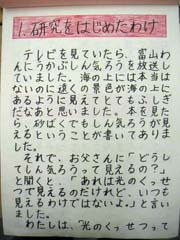 1.研究をはじめたわけ
テレビを見ていたら、富山わ
んにうかぶしん気ろうを放送し
ていました。海の上には本当は
ないのに遠くの景色が海の上に
あるように見えてとてもふしぎ
だなあと思いました。本を見た
ら、砂ばくでもしん気ろうが見え
るということが書いてありまし
た。
それで、お父さんに「どうし
てしん気ろうって見えるの？」
と聞くと、「あれは光のくっせ
つで見えるのだけれど、いつでも
見えるわけではないよ。」と言い
ました。
わたしは、"光のくっせつって